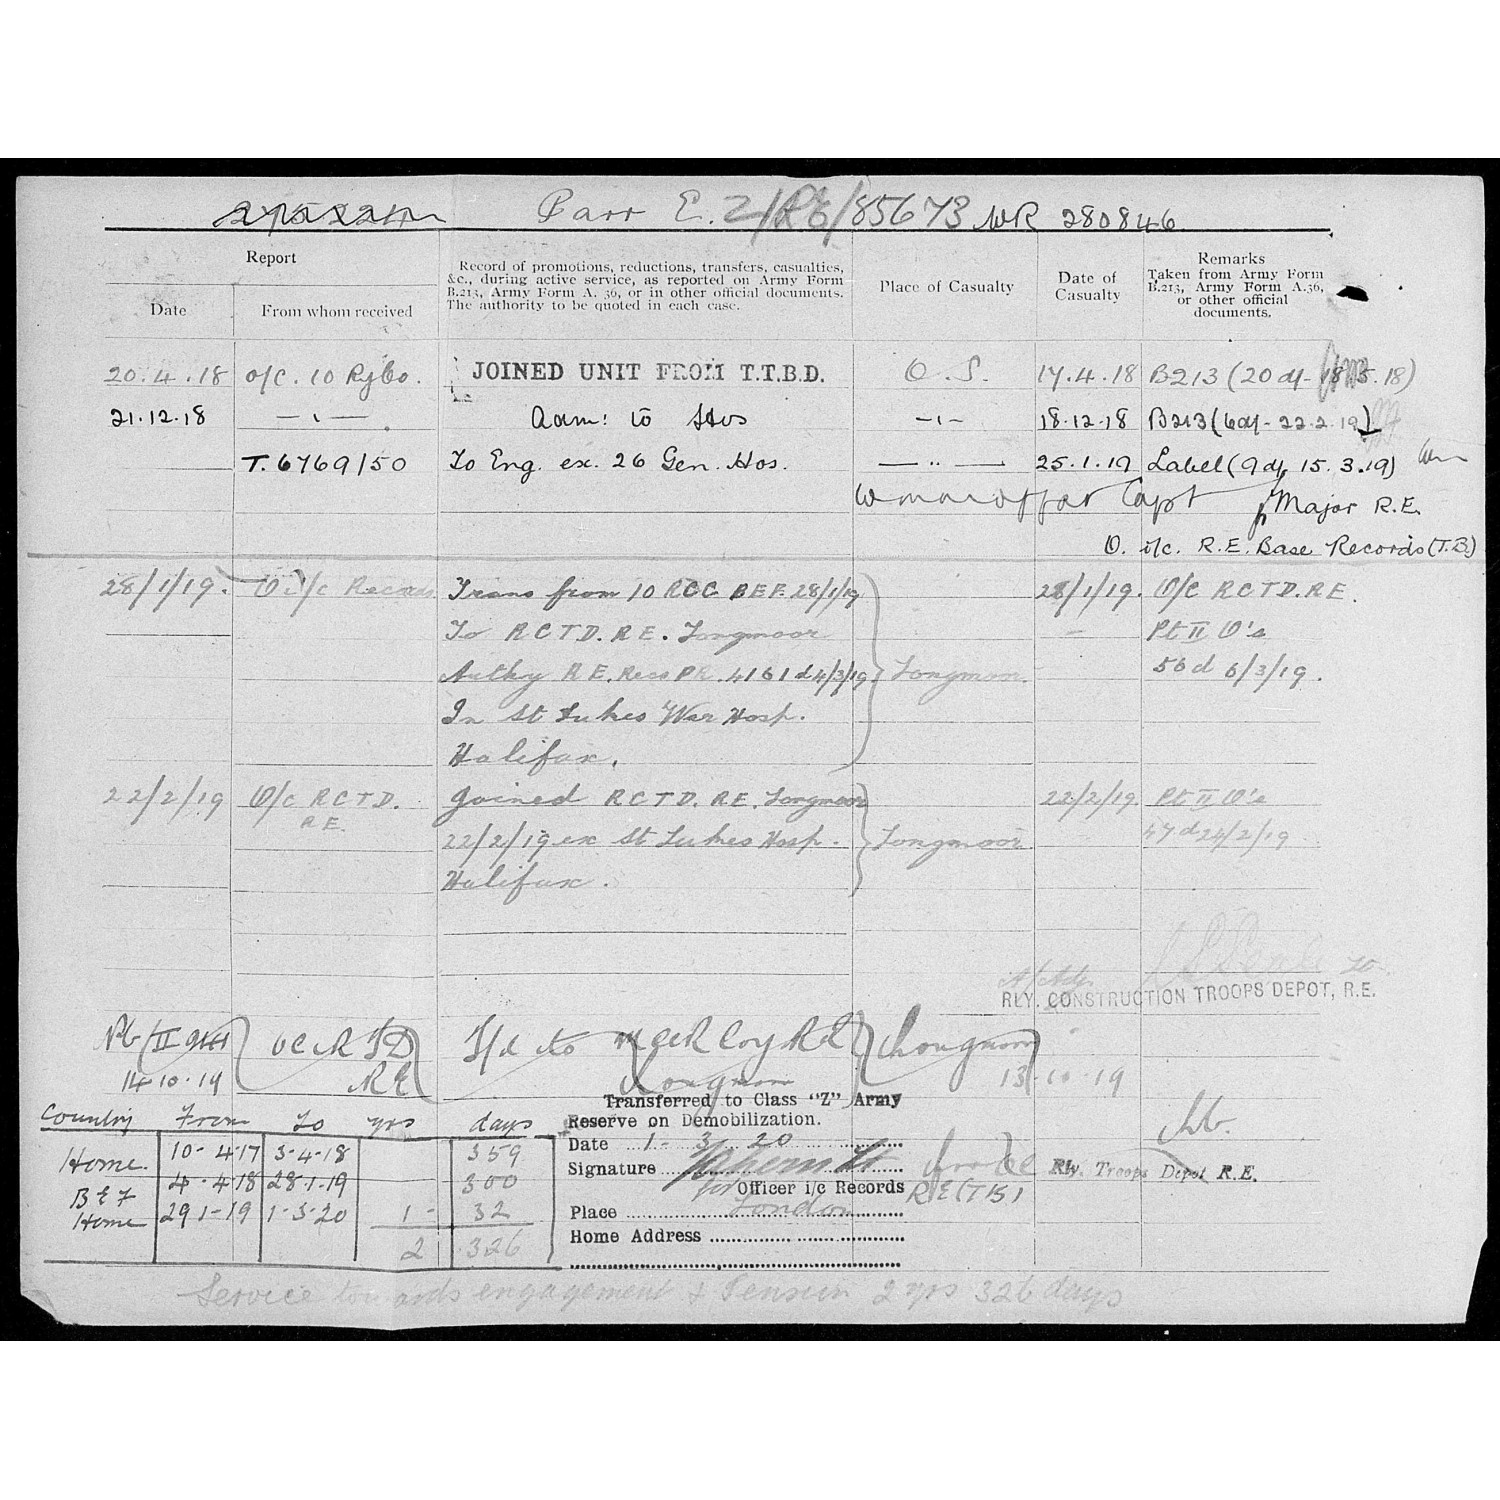 Parr E. 2/RE/85673 WR 280846
Report
Date
From whom received
Record of promotions, reductions, transfers, casualties,
&c., during active service, as reported on Army Form
B.213, Army Form A. 36, or in other official documents.
The authority to be quoted in each case.
Place of Casualty
Date of
Casualty
Remarks
Taken from Army Form
B.213, Army Form A.36,
or other official
documents.
20.4.18 O/C. 10 Ry Co. JOINED UNIT FROM T.T.B.D. O.S. 17.4.18 B213 (20 d/- 18.5.18)
21.12.18 —"— Adm: to Hos —"— 18.12.18 B213 (6 d/- 22.2.19)
T.6769/50 To Eng. ex. 26 Gen. Hos. —"— 25.1.19 Label (9 d/ 15.3.19)
Capt Major R.E.
O. i/c. R.E. Base Records (T.B.)
28/1/19. O i/c Records Trans from 10 RCC BEF 28/1/19 28/1/19. O/C RCTD. RE.
To RCTD. RE. Longmoor Pt II O's
Authy R.E. Recs PR. 4161 d 4/3/19 Longmoor. 56 d 6/3/19.
In St Lukes War Hosp.
Halifax.
22/2/19 O/C RCTD. Joined RCTD. RE. Longmoor 22/2/19 Pt II O's
RE. 22/2/19 ex St Lukes Hosp. Longmoor 47 d 24/2/19
Halifax.
A/Adj.
RLY. CONSTRUCTION TROOPS DEPOT, R.E.
Pt II OC R T D T/d to Coy RE Longmoor
14.10.19 RE Longmoor 13.10.19
Transferred to Class "Z" Army
Reserve on Demobilization.
Date 1- 3 20
Signature
for Officer i/c Records
RE (T15)
Place London
Home Address
Rly. Troops Depot R.E.
Country From To yrs days
Home. 10-4-17 3-4-18 359
BEF 4-4-18 28-1-19 300
Home 29 1-19 1-3-20 1 - 32
2 326
Service towards engagement & Pension 2 yrs 326 days